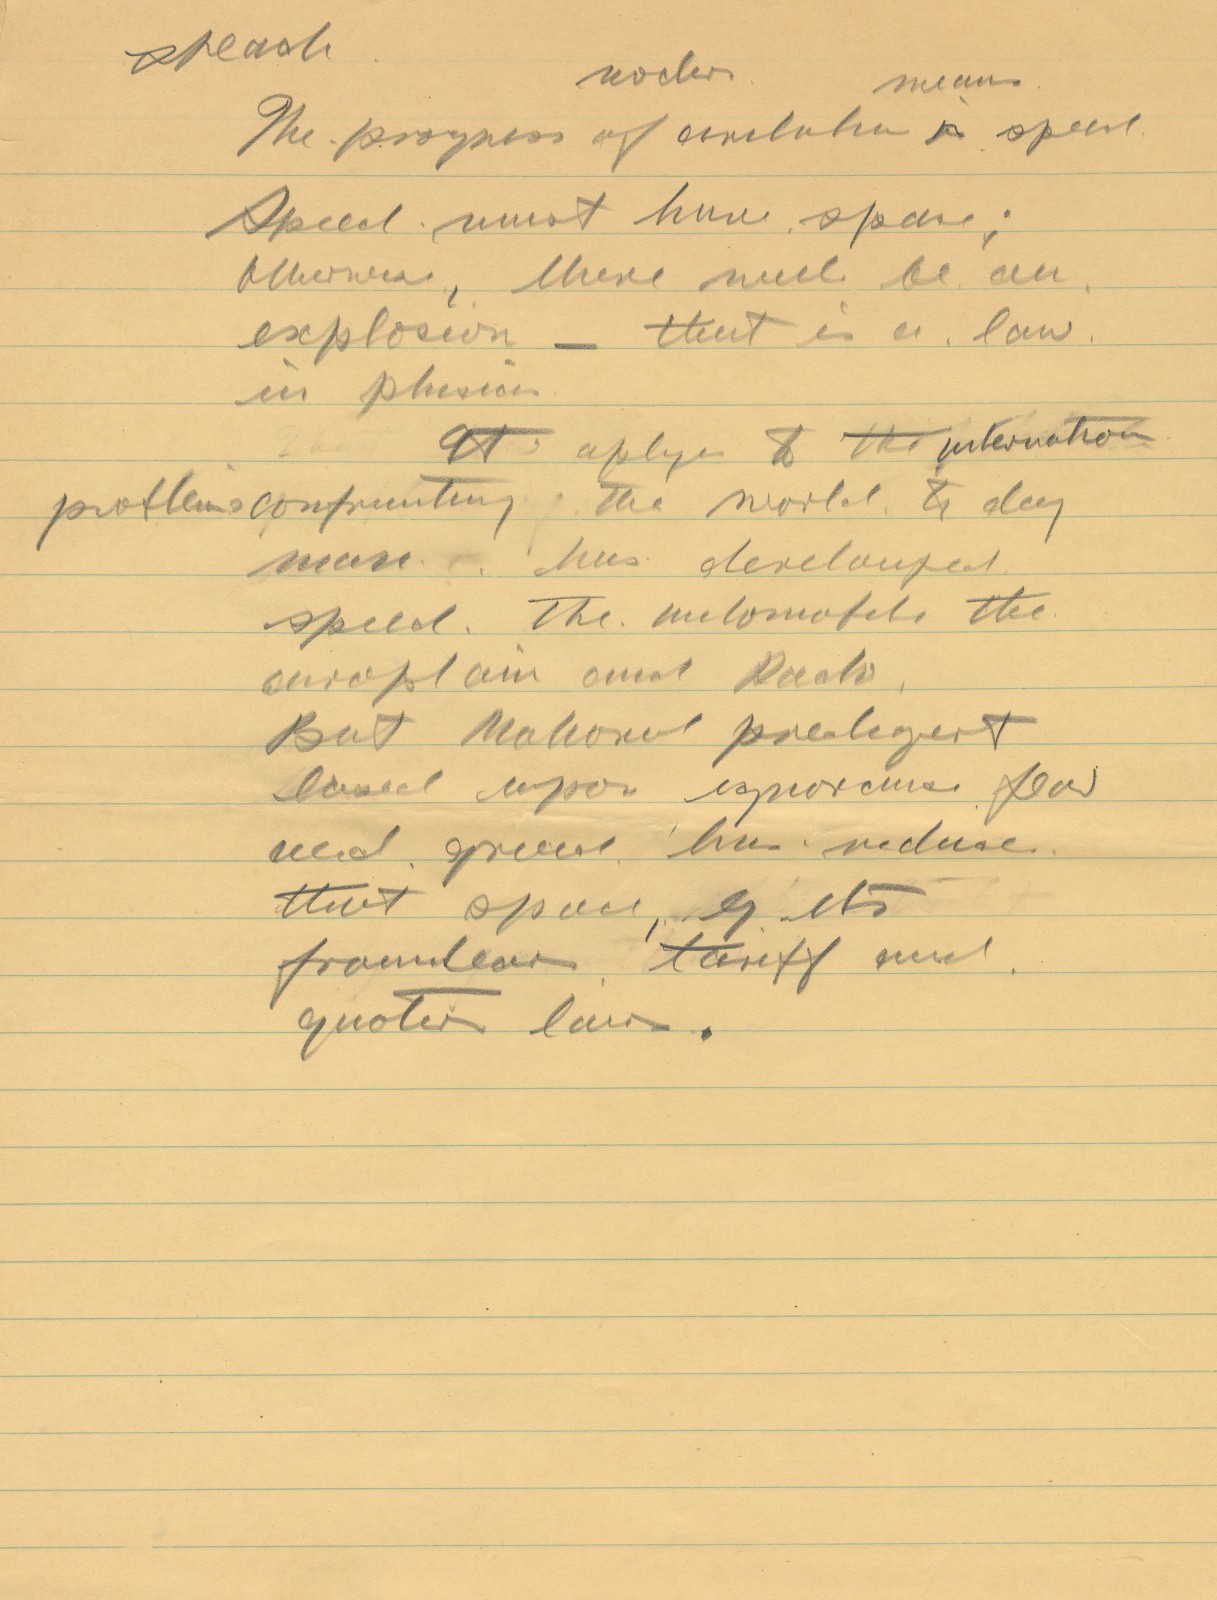 speach
modern means
The progress of civilation is speed
Speed must have space;
otherwise, there will be an
explosion – that is a law
in phisics
It aplys to the internation
problems confrunting the world to day
man has developed
speed. The automobile the
airoplain and Radio,
But National predigest
based upon ignorance fear
and greed has reduse
that space, by its
frountears tariff and
quoters laws.